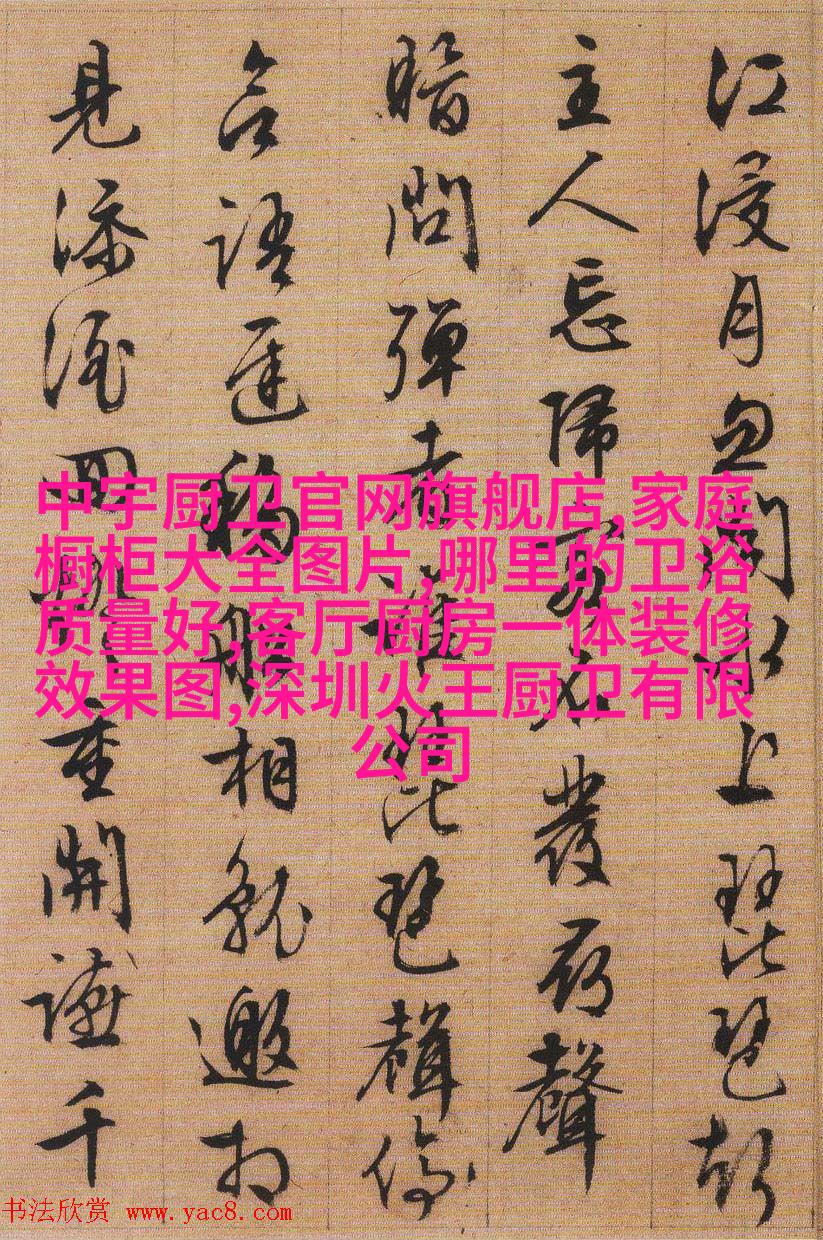 江浸月忽聞水上琵琶聲
主人忘歸客不發尋聲
暗問彈者誰琵琶聲停
語遲移船相就邀相
見添酒回燈重開讌千
中宇厨卫官网旗舰店,家庭
橱柜大全图片,哪里的卫浴
质量好,客厅厨房一体装修
效果图,深圳火王厨卫有限
公司
书法欣赏 www.yac8.com